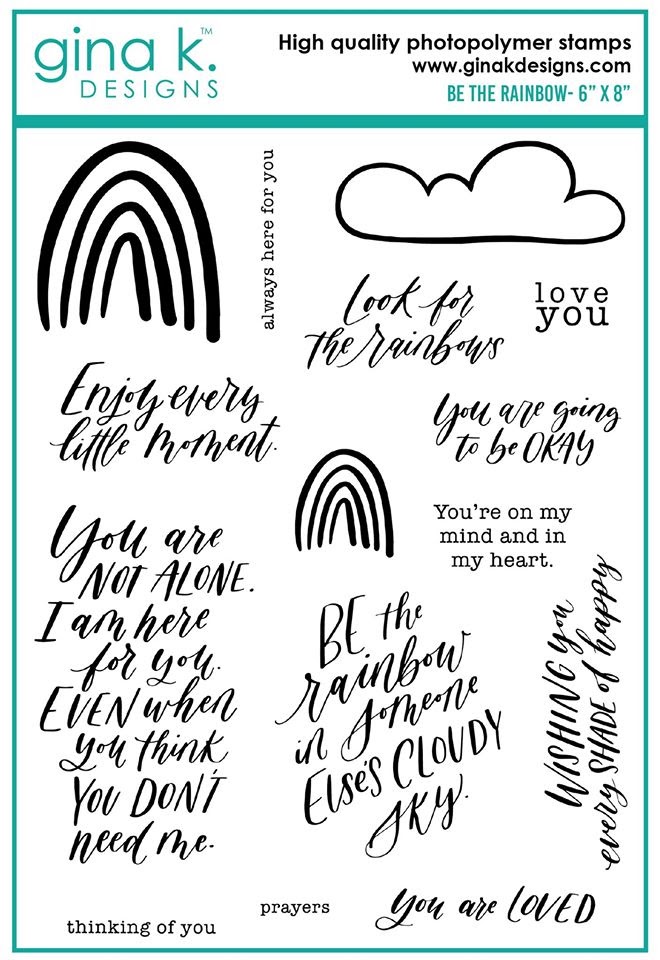 gina k.™
DESIGNS
High quality photopolymer stamps
www.ginakdesigns.com
BE THE RAINBOW- 6” X 8”
always here for you
Look for
the rainbows
love
you
Enjoy every
little moment.
You are going
to be OKAY
You're on my
mind and in
my heart.
You are
NOT ALONE.
I am here
for you.
EVEN when
you think
YOU DON'T
need me.
BE the
rainbow
in someone
ELSE'S CLOUDY
SKY.
WISHING you
every SHADE of happy
thinking of you
prayers
You are LOVED